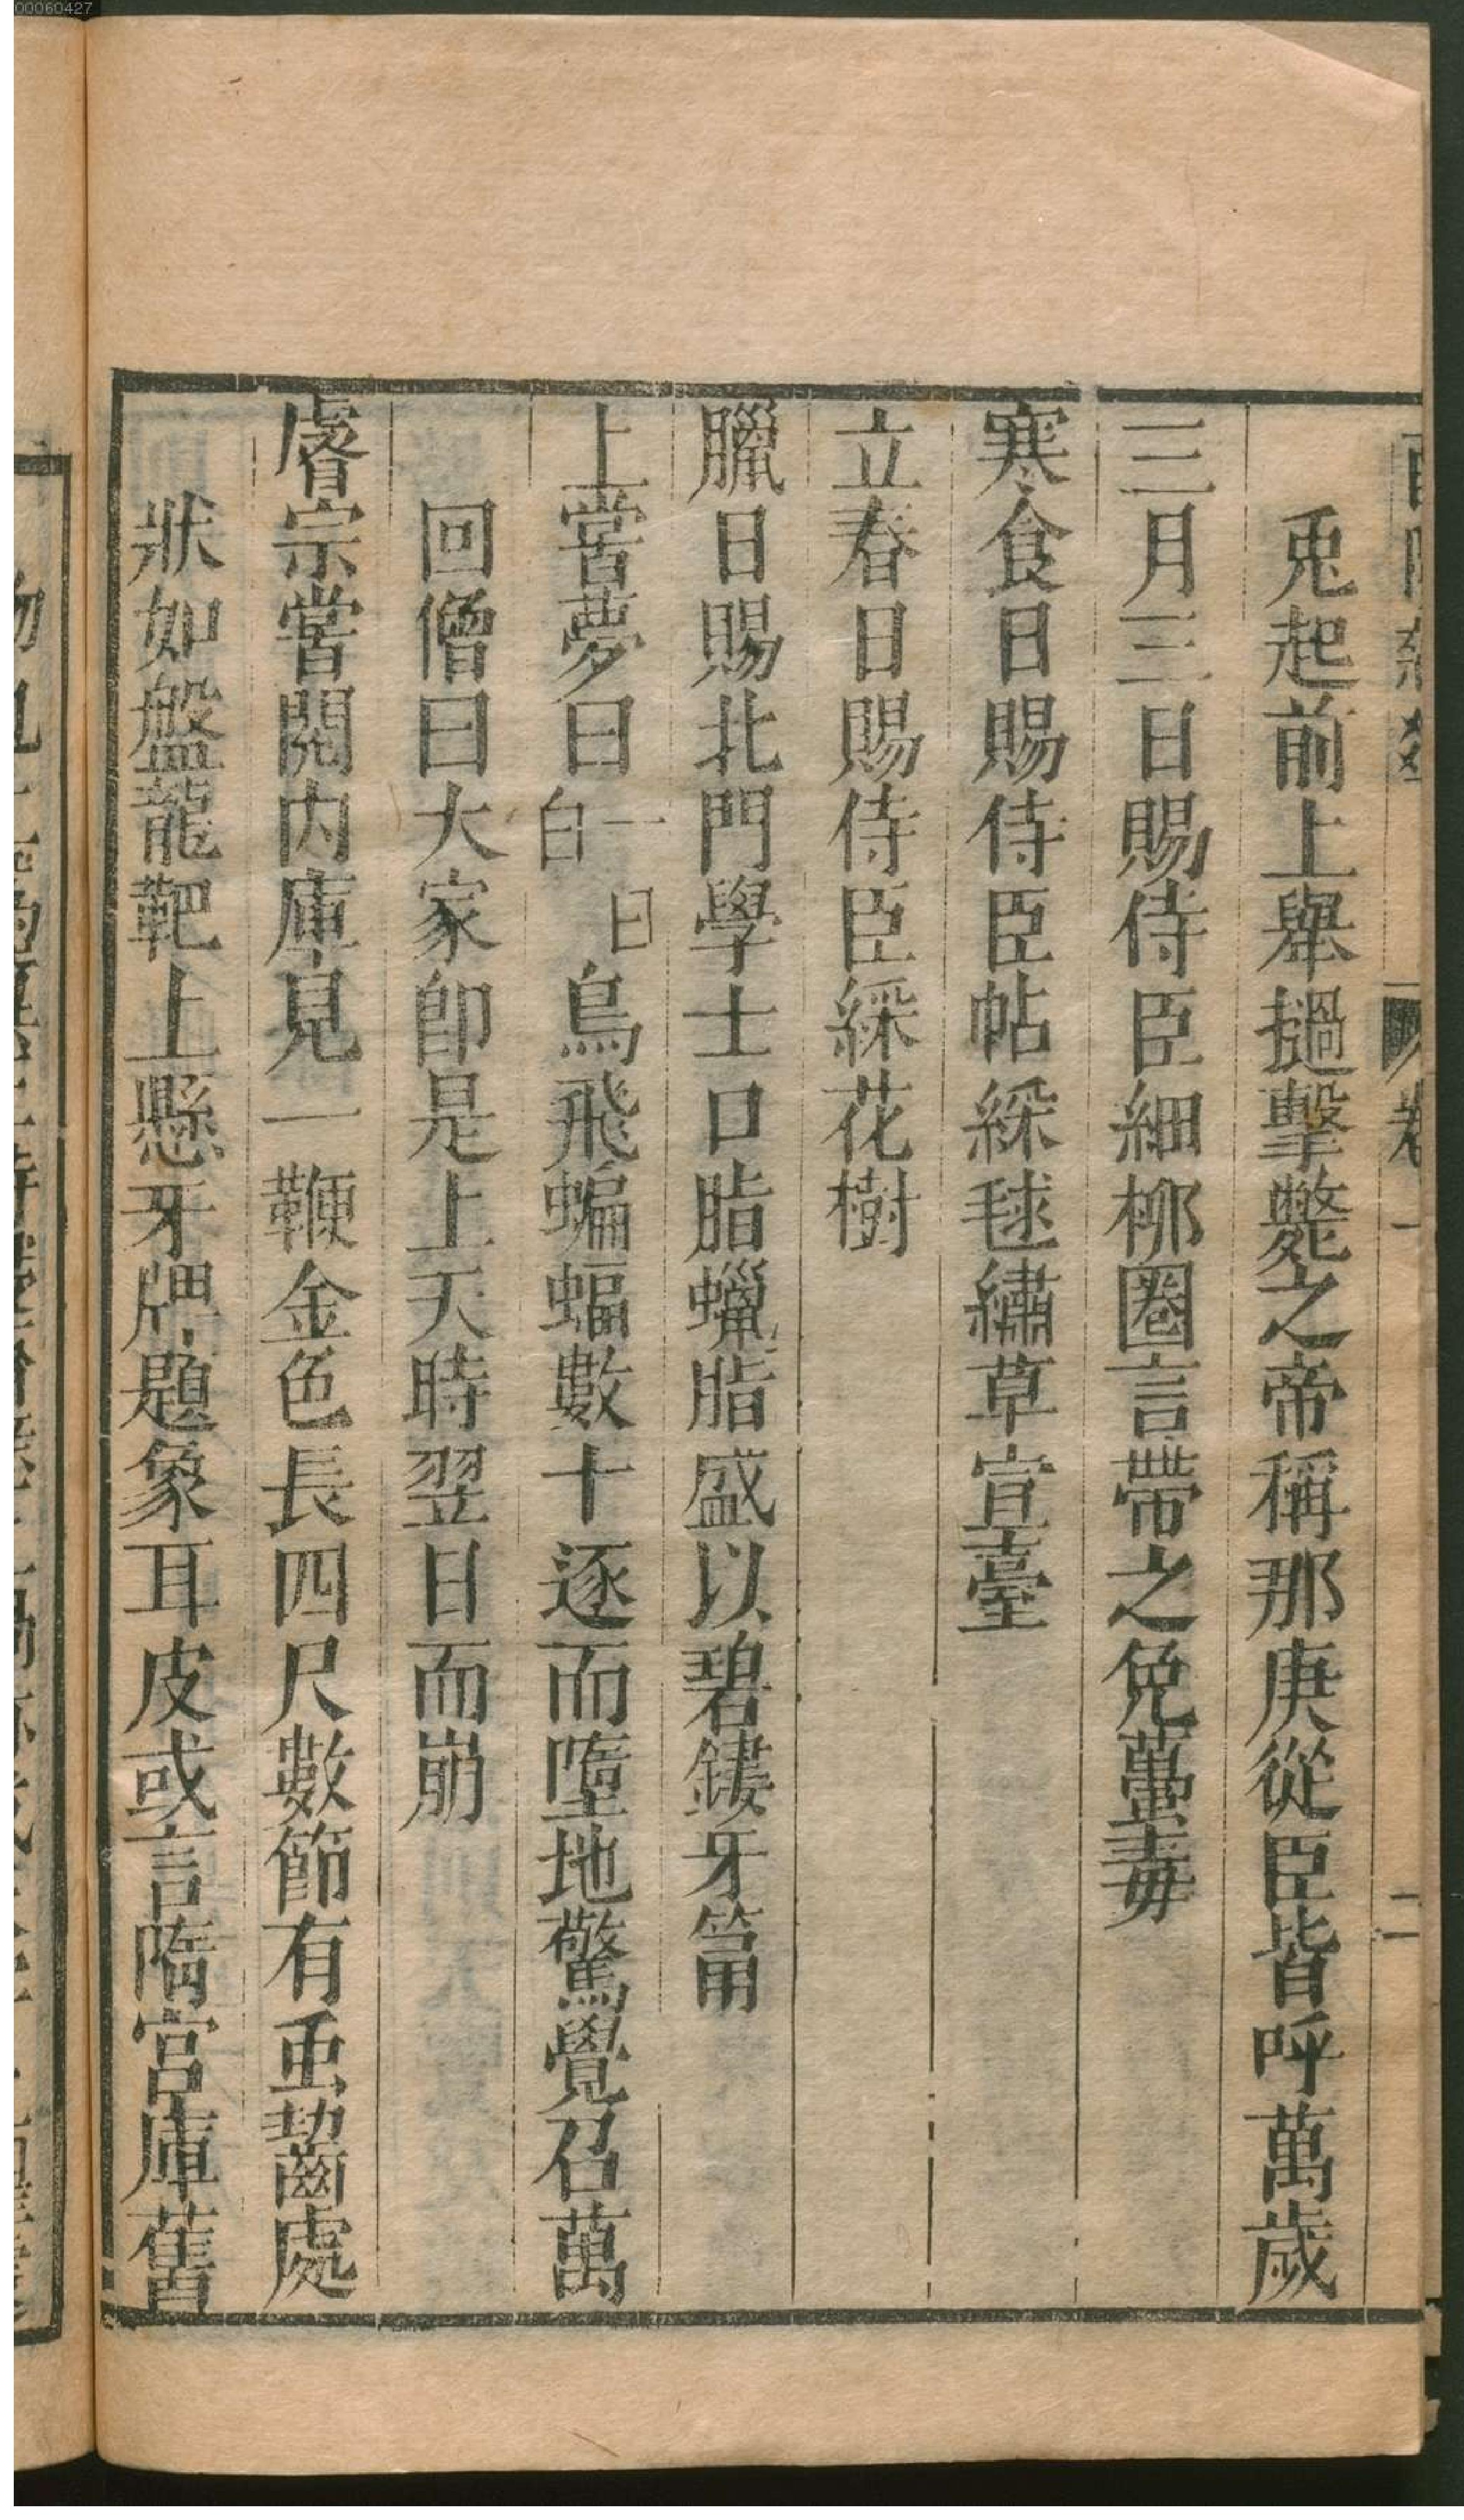 00060427
卷一
二
兎起前上舉撾擊斃之帝稱那庚從臣皆呼萬歲
三月三日賜侍臣細桺圈言帶之免蠆毒
寒食日賜侍臣帖綵毬繡草宣臺
立春日賜侍臣綵花樹
臘日賜北門學士口脂蠟脂盛以碧鏤牙筩
上嘗夢曰一曰白鳥飛蝙蝠數十逐而墮地驚覺召萬
回僧曰大家卽是上天時翌日而崩
睿宗嘗閱内庫見一鞭金色長四尺數節有䖝齧處
狀如盤龍靶上懸牙牌題象耳皮或言隋宫庫舊